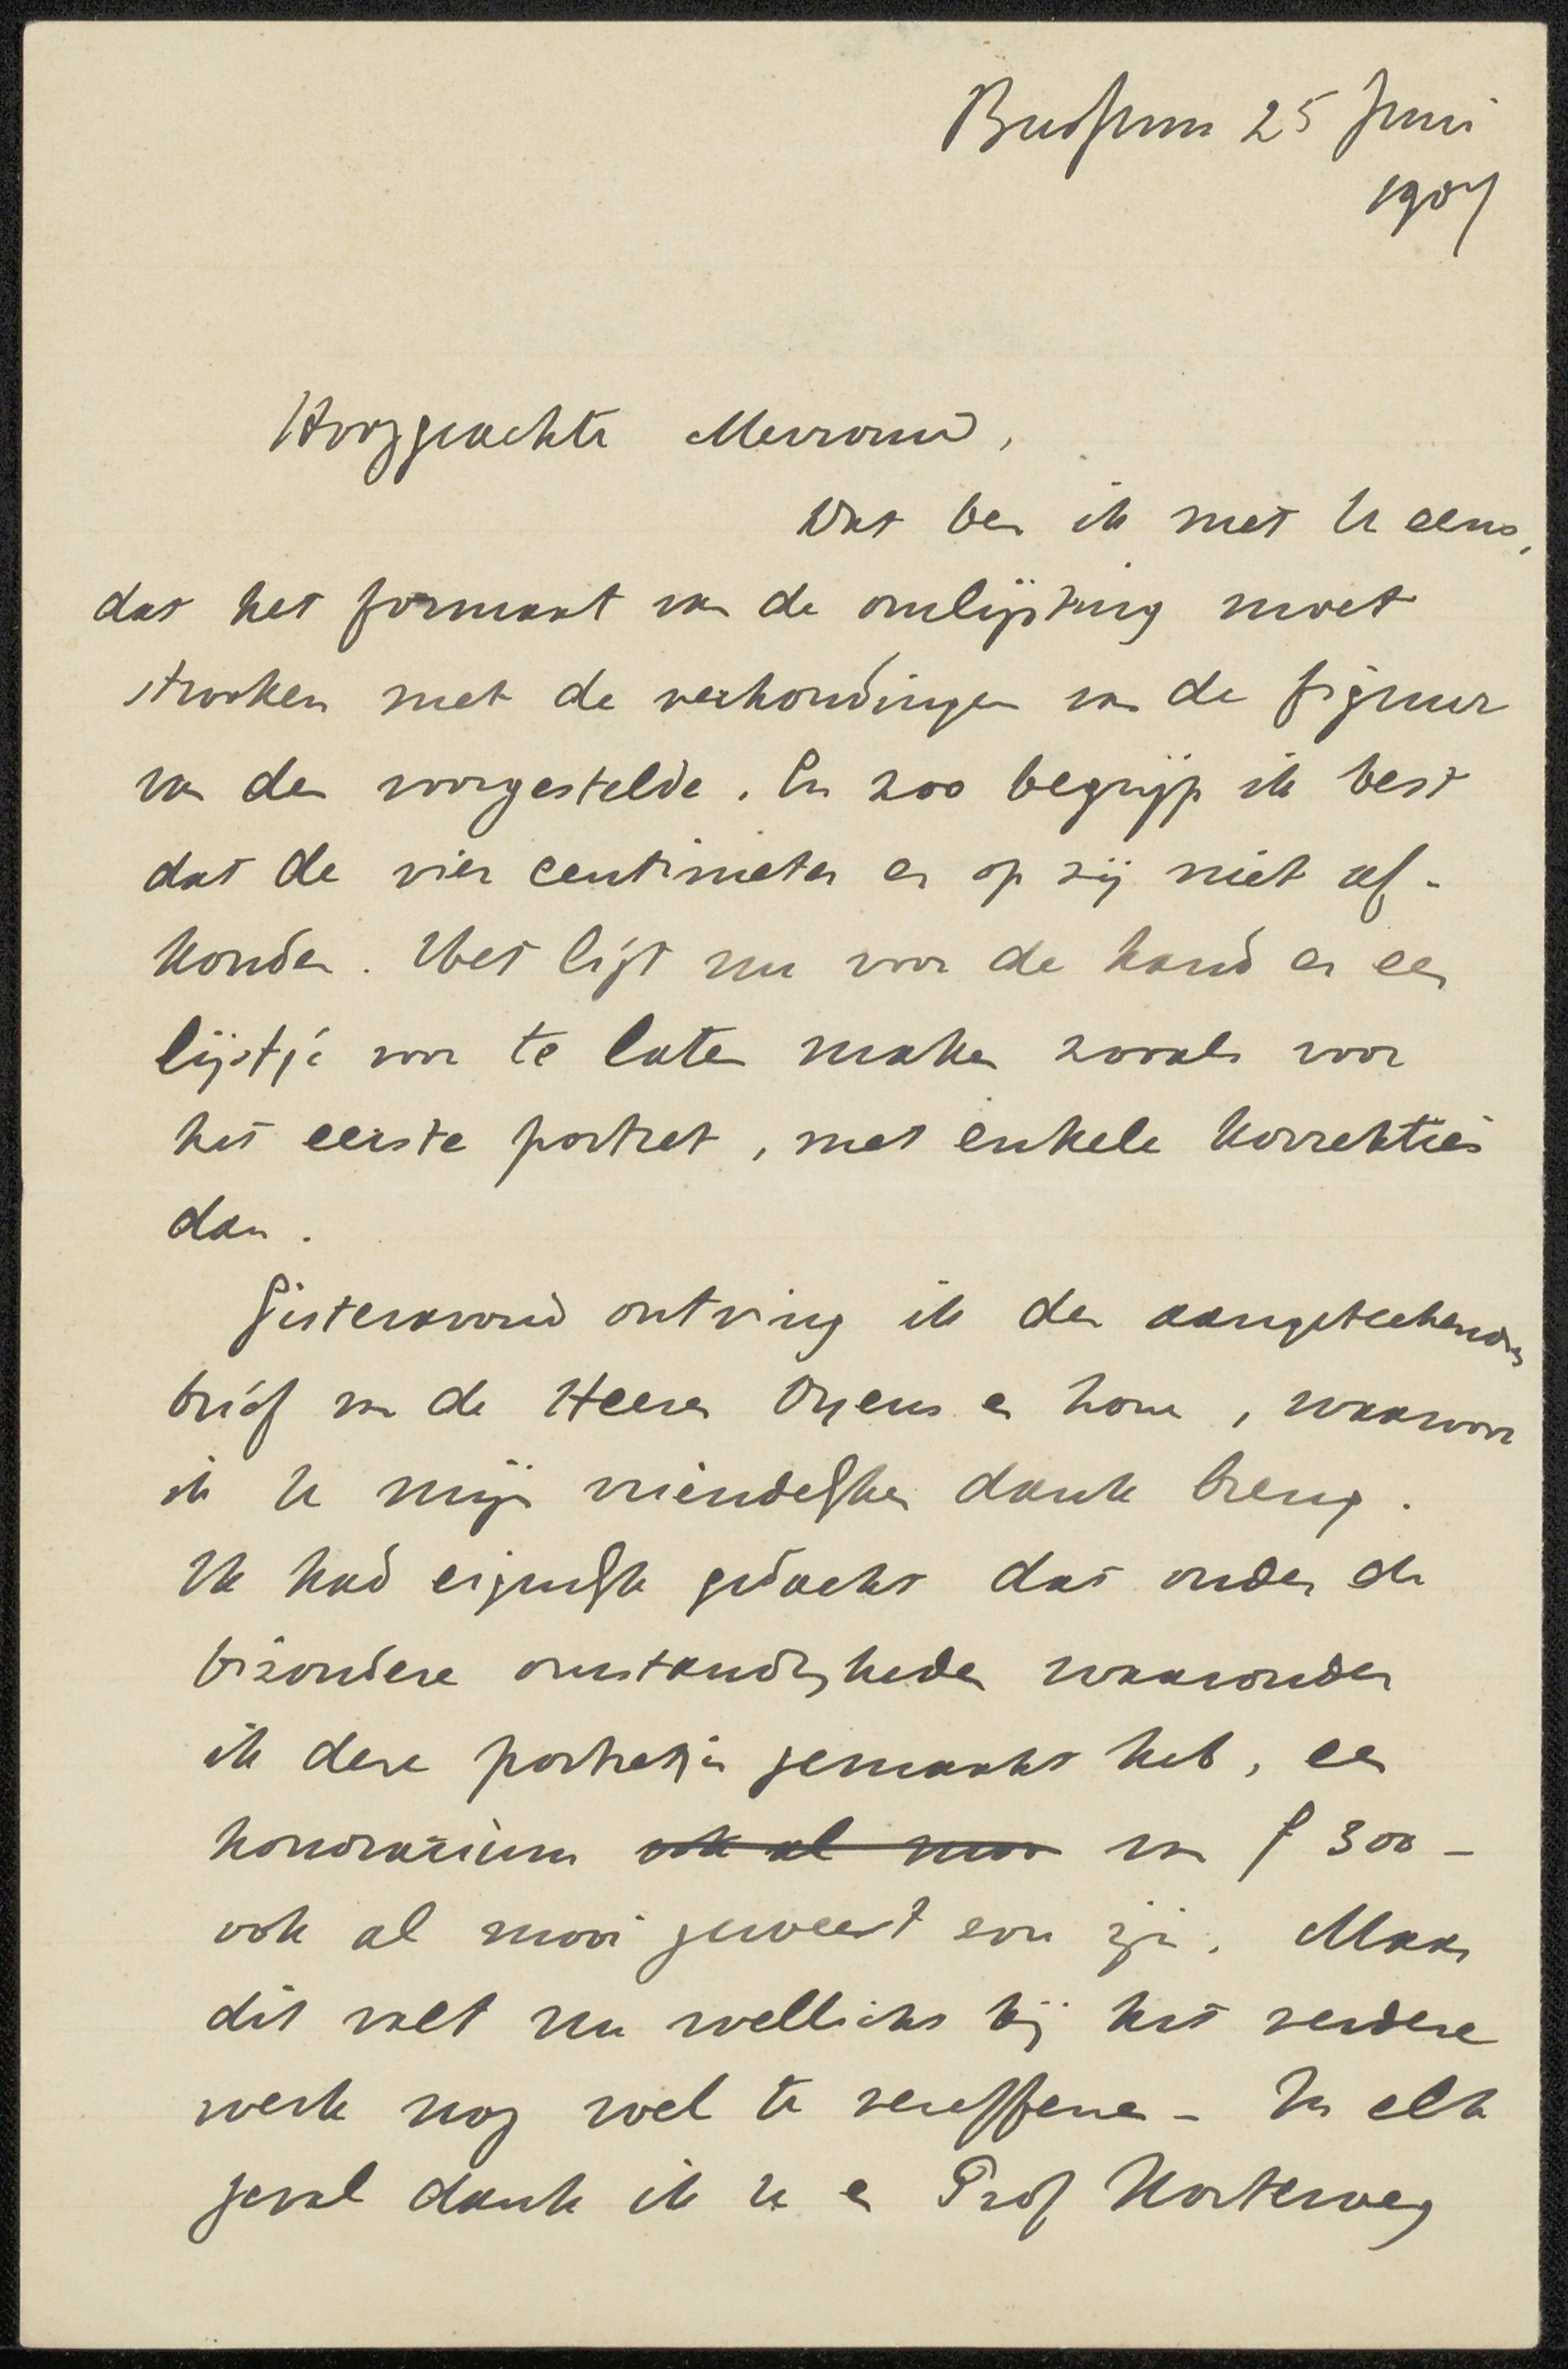 Bussum 25 Juni
1907
Hooggeachte Mevrouw,
Dat ben ik met U eens,
dat het formaat van de omlijsting moet
strooken met de verhoudingen van de figuur
van den voorgestelde. En zoo begrijp ik best
dat de vier centimeter er op zij niet af-
konden. Het ligt nu voor de hand er een
lijstje voor te laten maken zooals voor
het eerste portret, met enkele korrekties
dan.
Gisteravond ontving ik den aangeteekenden
brief van de Heeren Oyens en Zonen, waarvoor
ik U mijn vriendelijken dank breng.
Ik had eigenlijk gedacht dat onder de
bizondere omstandigheden waaronder
ik deze portretjes gemaakt heb, een
honorarium ook al mooi van f 300 –
ook al mooi geweest zou zijn. Maar
dit valt nu wellicht bij het verdere
werk nog wel te vereffenen – In elk
geval dank ik U en Prof Korteweg